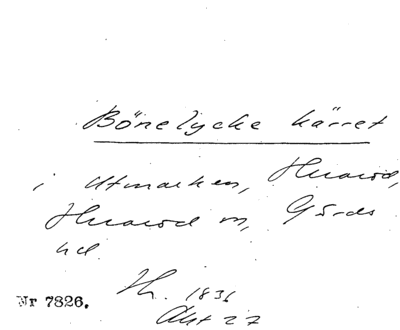 Bönelycke kärret
i Utmarken, Huaröd,
Huaröd sn, Gärds
hd.
Nr 7826.
Th. 1836
Akt 27